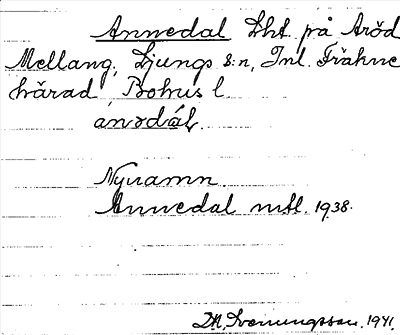 Annedal Lht. på Aröd
Mellang, Ljungs s:n, Inl. Fräkne
härad, Bohus l
anədál.
Nynamn.
Annedal mtl. 1938.
D.A. Svenungsson. 1941.